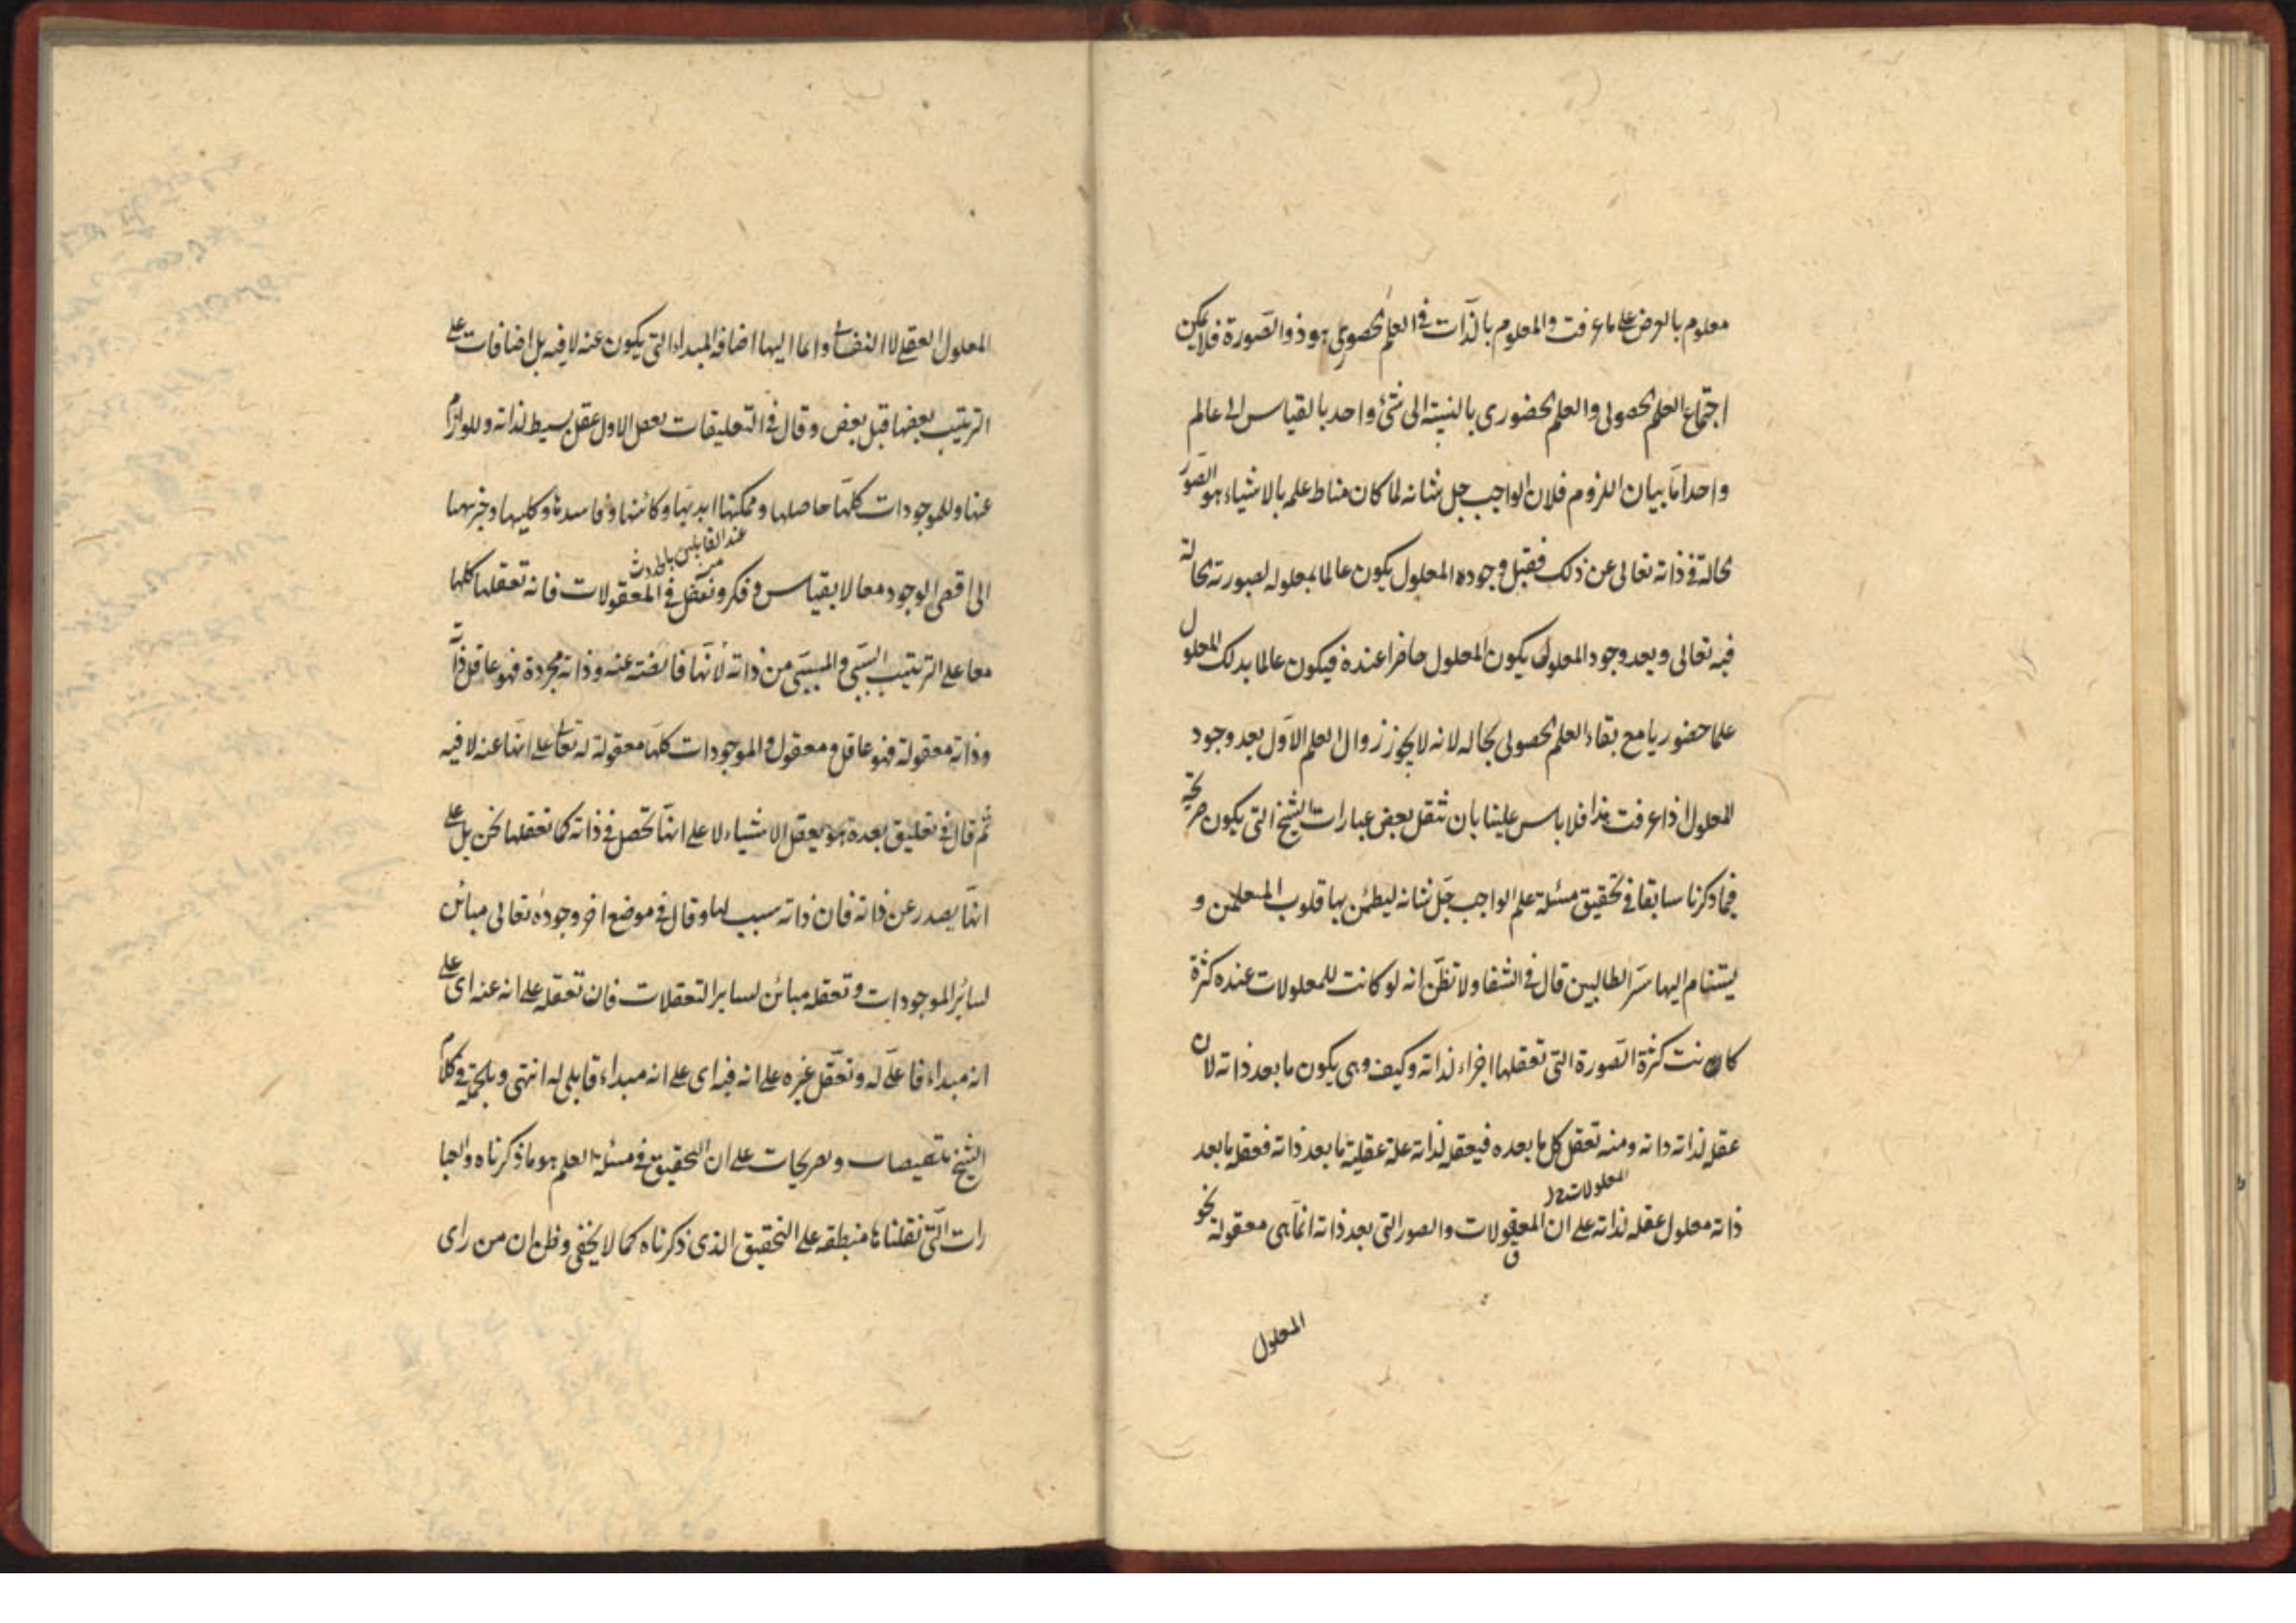 معلوم بالعرض على ما عرفت والمعلوم بالذات في العلم الحصولي هو ذو الصورة فلا يمكن
اجتماع العلم الحصولي والعلم الحضوري بالنسبة الى شئ واحد بالقياس الى عالم
واحد اما بيان اللزوم فلان الواجب جل شانه لما كان مناط علمه بالاشياء هو الصور
الحالة في ذاته تعالى عن ذلك فقبل وجوده المعلول يكون عالما بمعلوله لصورته الحالة
فيه تعالى وبعد وجود المعلول يكون المعلول حاضرا عنده فيكون عالما بذلك المعلول
علما حضوريا مع بقاء العلم الحصولي بحاله لانه لا يجوز زوال العلم الاول بعد وجود
المعلول اذا عرفت هذا فلا باس علينا بان ننقل بعض عبارات الشيخ التي يكون صريحة
فيما ذكرنا سابقا في تحقيق مسئلة علم الواجب جل شانه ليطمئن بها قلوب المعلمين و
يستنام اليها سر الطالبين قال في الشفا ولا تظن انه لو كانت للمعلولات عنده كثرة
كانت كثرة الصورة التي تعقلها اجزاء لذاته وكيف وهي يكون ما بعد ذاته لان
عقله لذاته ذاته ومنه تعقل كل ما بعده فيعقله لذاته علة عقلية ما بعد ذاته فعقله ما بعد
المعلولات
ذاته معلول عقله لذاته على ان المعقولات والصور التي بعد ذاته انما هي معقولة نحو
المعلول
المعلول العقلي لا النفساني وانما اليها اضافة المبداء التي يكون عنه لا فيه بل اضافات على
الترتيب بعضها قبل بعض وقال في التعليقات تعقل الاول عقل بسيط لذاته وللوازم
عنها وللموجودات كلها حاصلها وممكنها ابديها وكائنها وفاسدها وكليها وجزيها
عند القابلين بالحدوث
الى اقصى الوجود معا لا بقياس وفكر وتعقل في المعقولات فانه تعقلها كلها
معا على الترتيب السببي والمسببي من ذاته لانها فائضة عنه وذاته مجردة فهو عاقل ذاته
وذاته معقولة فهو عاقل ومعقول والموجودات كلها معقولة له تعالى على انها عنه لا فيه
ثم قال في تعليق بعده هو يعقل الاشياء لا على انها تحصل في ذاته كما نعقلها نحن بل على
انها يصدر عن ذاته فان ذاته سبب لها وقال في موضع اخر وجوده تعالى مبائن
لسائر الموجودات وتعقله مبائن لسائر التعقلات فان تعقله على انه عنه اى على
انه مبداء فاعلى له وتعقل غيره على انه فيه اى على انه مبداء قابلى له انتهى وبالجملة في كلام
الشيخ تنصيصات وتصريحات على ان التحقيق في مسئلة العلم هو ما ذكرناه والعبا
رات التي نقلناها منطبقة على التحقيق الذي ذكرناه كما لا يخفى وظن ان من راى